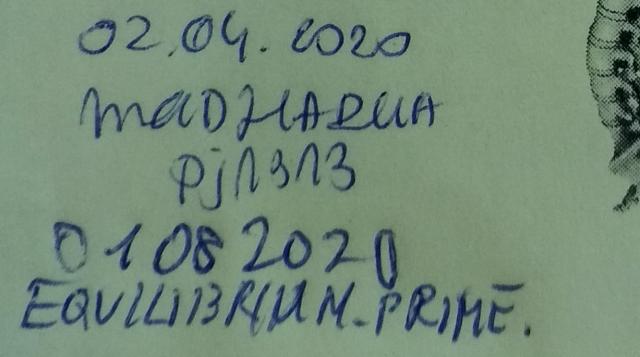 02.04.2020
MADHARUA
Pj1313
01082020
EQUILIBRIUM-PRIME.